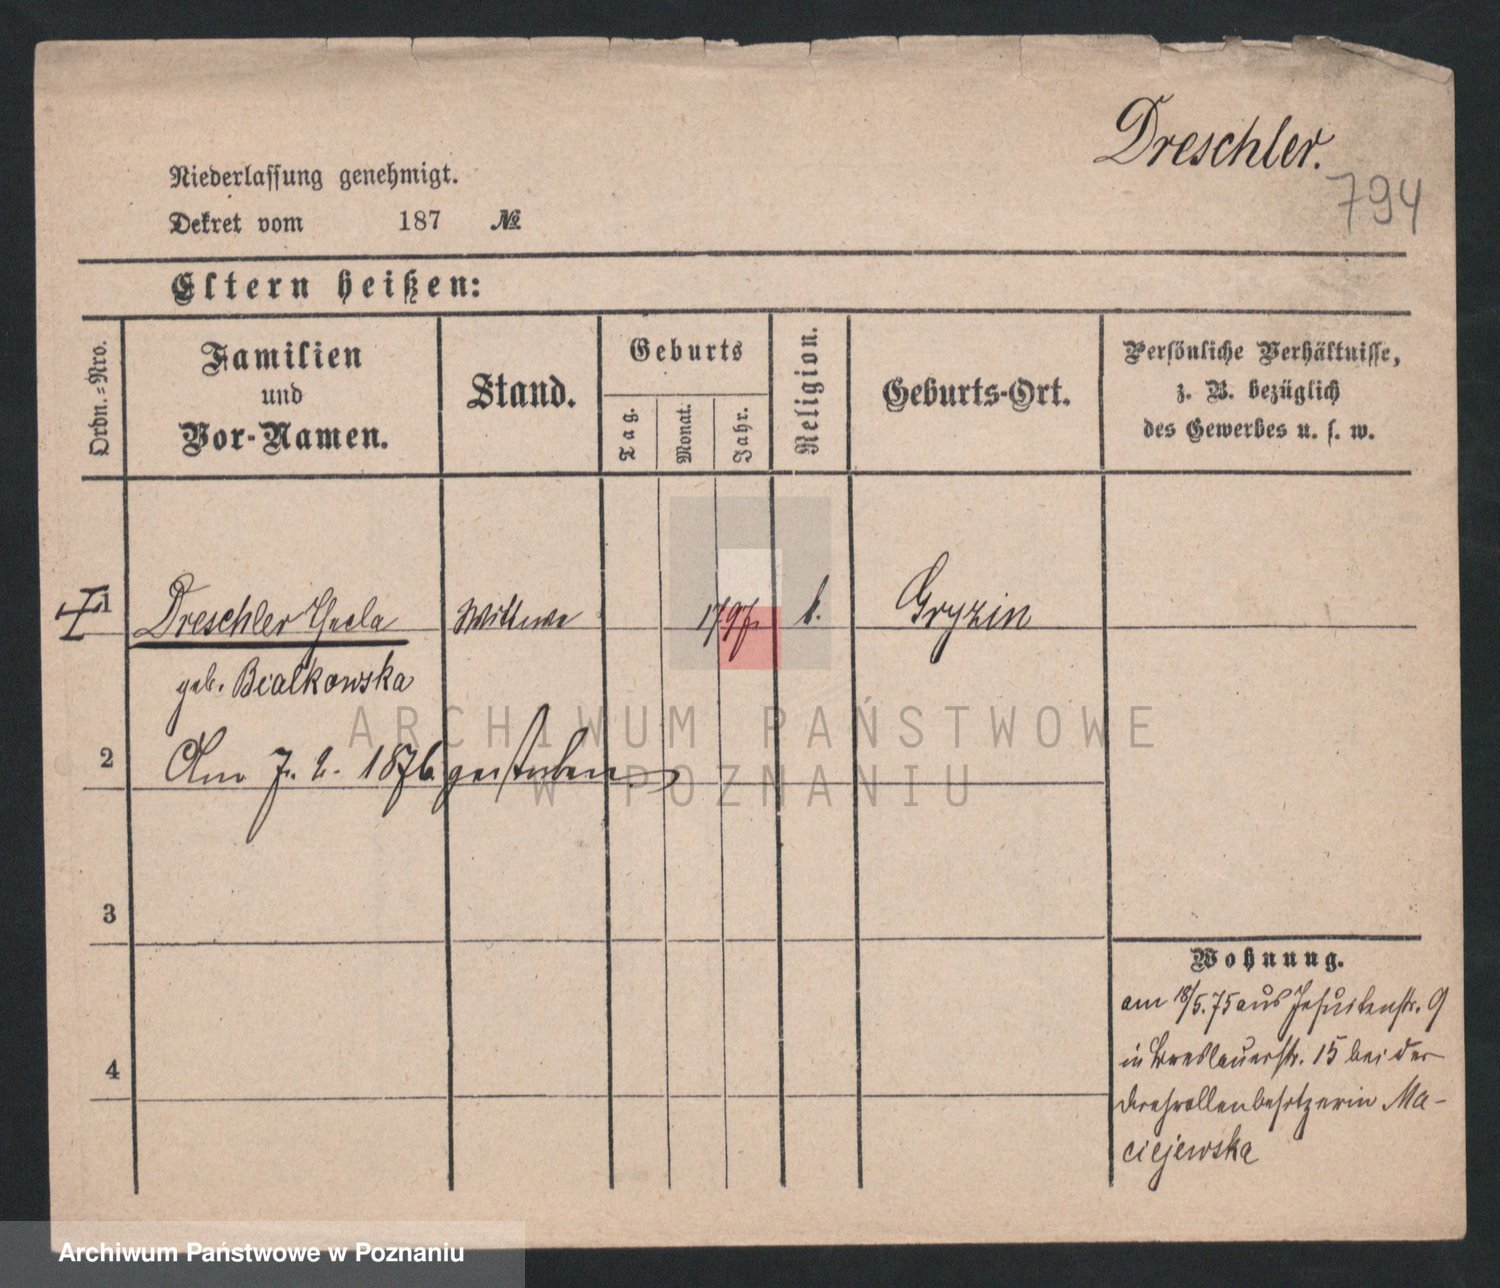 Dreschler.
794
Niederlassung genehmigt.
Dekret vom 187 №
Eltern heißen:
Ordn.-Nro.
Familien
und
Vor-Namen.
Stand.
Geburts
Tag.
Monat.
Jahr.
Religion.
Geburts-Ort.
Persönliche Verhältnisse,
z. B. bezüglich
des Gewerbes u. s. w.
1 Dreschler Thecla Wittwe 1797. k. Gryzin
geb. Bialkowska
ARCHIWUM PAŃSTWOWE
W POZNANIU
2 Am 7. 2. 1876 gestorben
3
4
Wohnung.
am 18/5. 75 aus Jesuitenstr. 9
in Breslauerstr. 15 bei der
Drehrollenbesitzerin Ma-
ciejewska
Archiwum Państwowe w Poznaniu